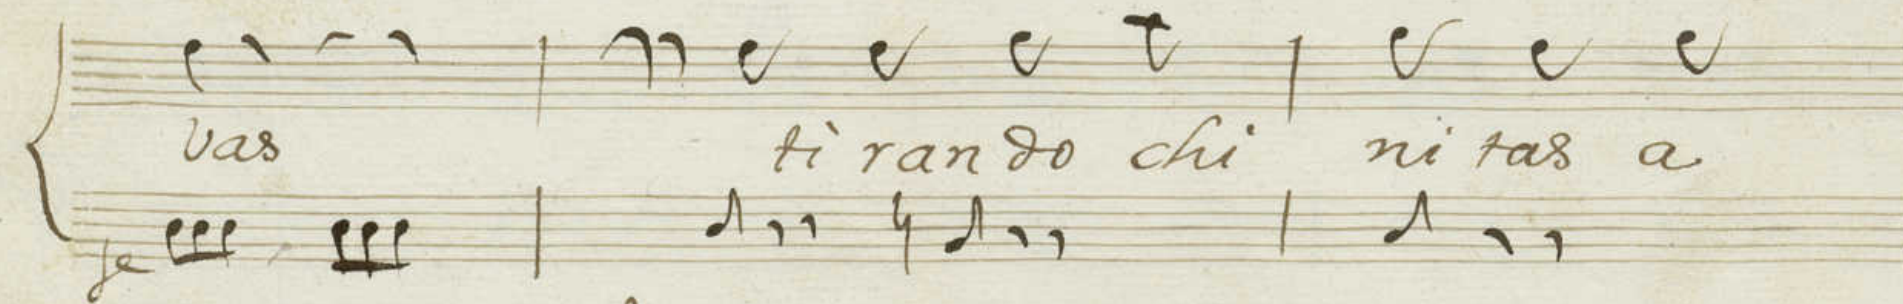 vas tì ran do chi ni tas a
fe